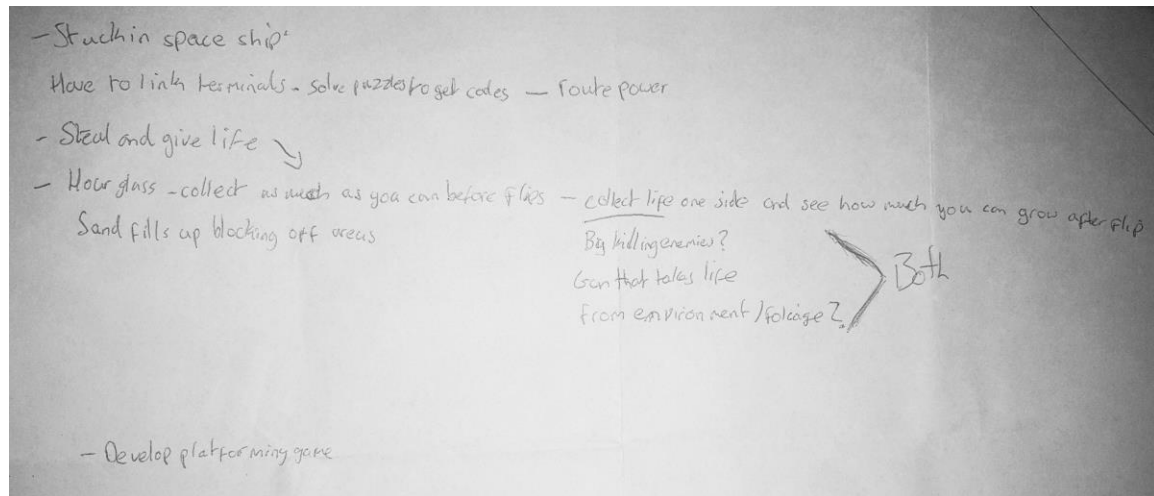 - Stuck in space ship
Have to link terminals - solve puzzles to get codes — route power
- Steal and give life
- Hour glass - collect as much as you can before flips — collect life one side and see how much you can grow after flip
Sand fills up blocking off areas
By killing enemies?
Gun that takes life
Both
from environment / foliage?
- Develop platforming game